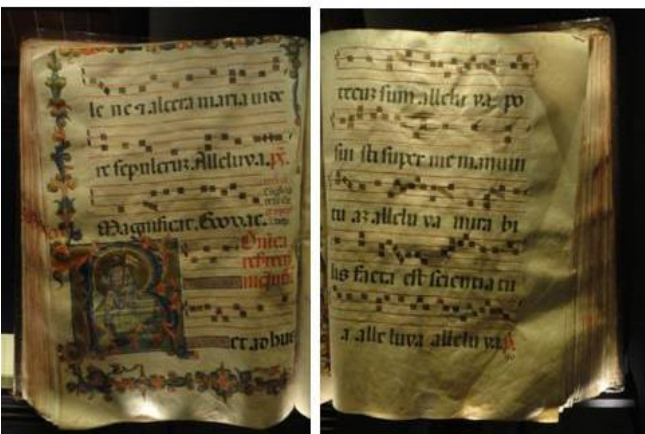 le ne ⁊ altera maria uide
re sepulcruʒ. Alleluya. pš.
Magnificat. Evovae.
et adhuc
tecuʒ sum allelu ya. po
sui sti super me manum
tu aʒ allelu ya mira bi
lis facta est scientia tu
a alle luya allelu ya.